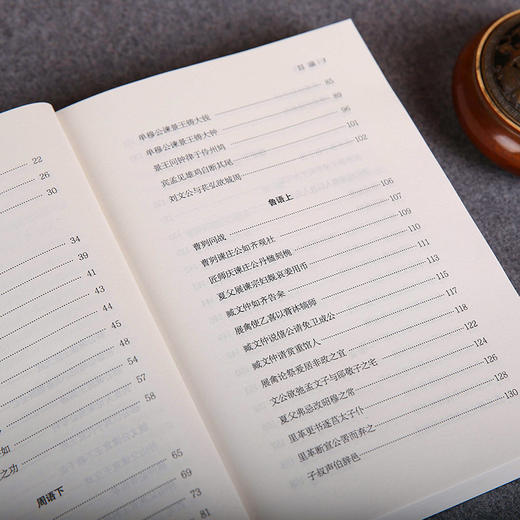 22
26
30
34
39
41
43
45
48
54
57
58
如
之功
65
周语下
69
73
81
目录
单穆公谏景王铸大钱 85
单穆公谏景王铸大钟 89
景王问钟律于伶州鸠 96
宾孟见雄鸡自断其尾 101
刘文公与苌弘欲城周 102
鲁语上
曹刿问战 106
曹刿谏庄公如齐观社 107
匠师庆谏庄公丹楹刻桷 109
夏父展谏宗妇觌哀姜用币 110
臧文仲如齐告籴 111
展禽使乙喜以膏沐犒师 113
臧文仲说僖公请免卫成公 115
臧文仲请赏重馆人 117
展禽论祭爰居非政之宜 118
文公欲弛孟文子与郈敬子之宅 122
夏父弗忌改昭穆之常 124
里革更书逐莒太子仆 126
里革断宣公罟而弃之 128
子叔声伯辞邑 130